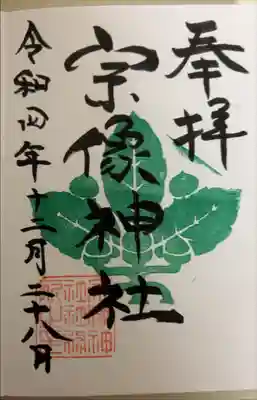 奉拝
宗像神社
令和四年十二月二十八日